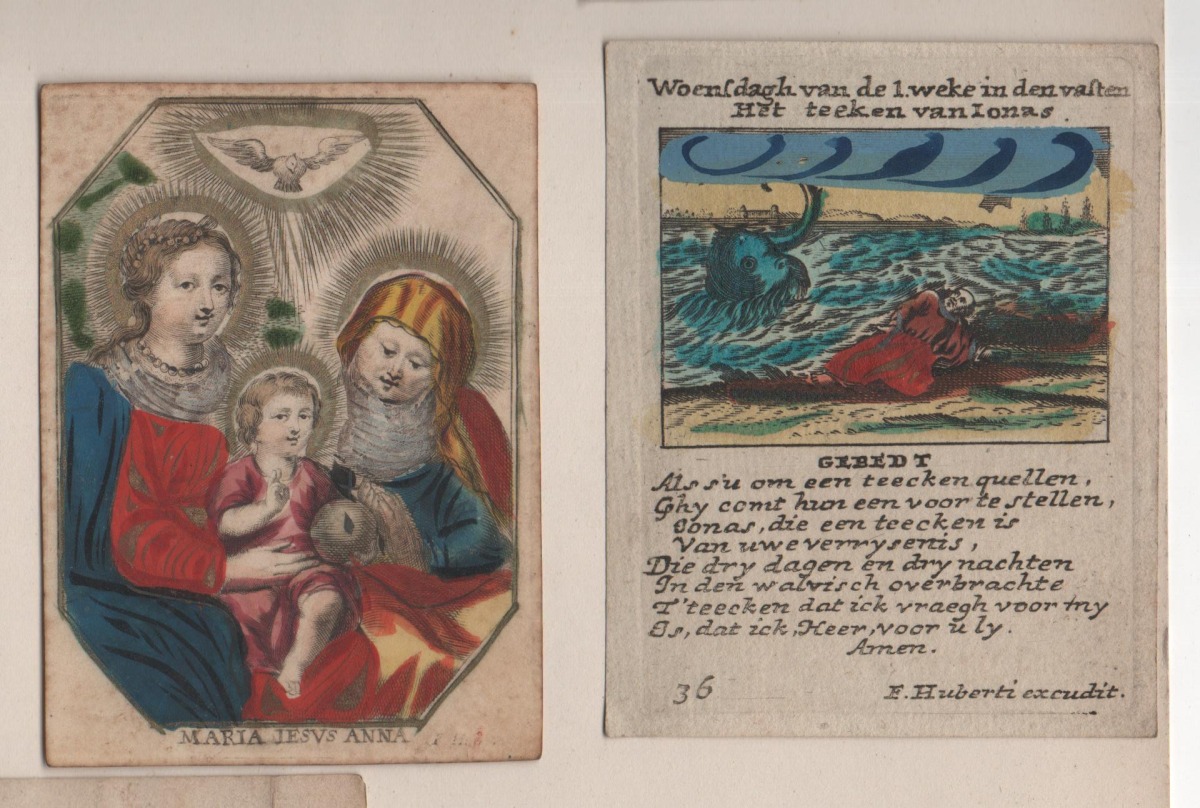 MARIA IESVS ANNA
Woensdagh van de 1. weke in den vasten
Het teeken van Ionas.
GEBEDT
Als s'u om een teecken quellen,
Ghy comt hun een voor te stellen,
Jonas, die een teecken is
Van uwe verrysenis,
Die dry dagen en dry nachten
In den walvisch overbrachte
T'teecken dat ick vraegh voor my
Is, dat ick, Heer, voor u ly.
Amen.
36
F. Huberti excudit.